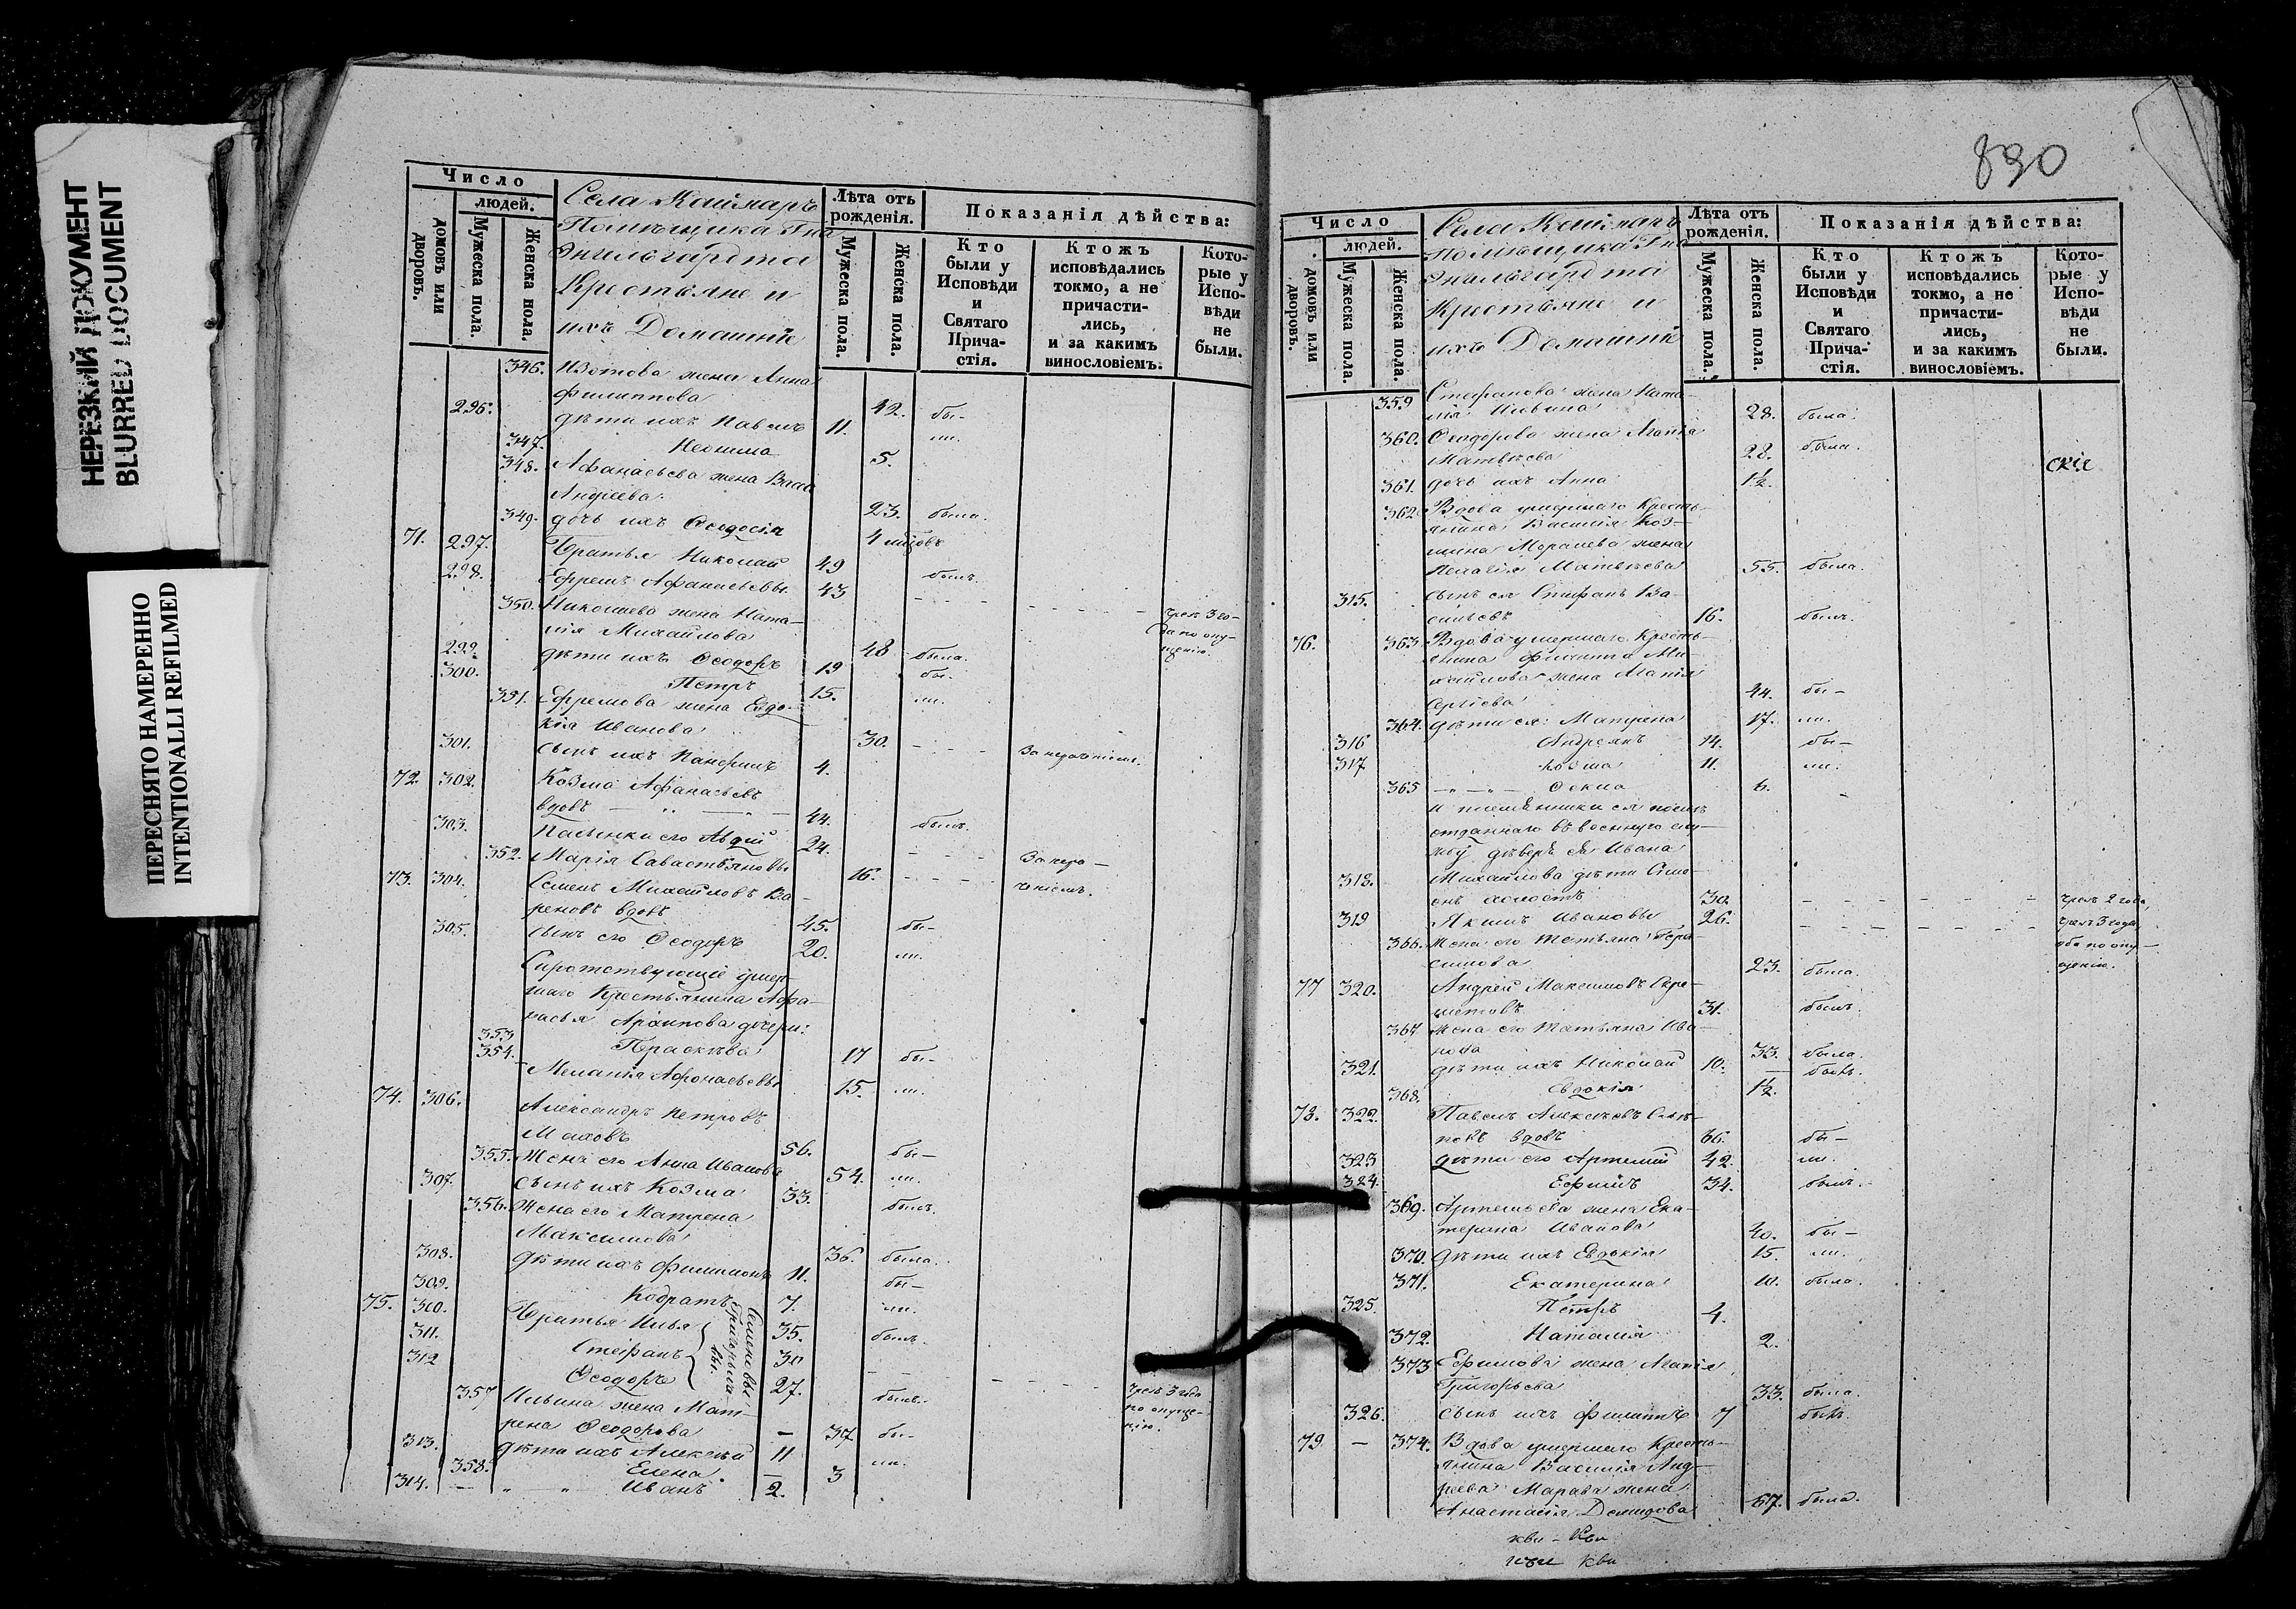 НЕРЕЗКИЙ ДОКУМЕНТ
BLURRED DOCUMENT
ПЕРЕСНЯТО НАМЕРЕННО
INTENTIONALLI REFILMED
Число
людей.
домовъ или дворовъ.
Мужеска пола.
Женска пола.
Села
Помѣщика Гна
Энгельгардта
Крестьяне и
ихъ Домашніе
Лѣта отъ рожденія.
Мужеска пола.
Женска пола.
Показанія дѣйства:
Кто были у Исповѣди и Святаго Прича-стія.
Ктожъ исповѣдались токмо, а не причасти-лись, и за какимъ винословіемъ.
Кото-рые у Испо-вѣди не были.
346. Изотова жена Анна
Филиппова 42. бы-
296. дѣти ихъ Павелъ 11. ли.
347. Неонила 5.
348. Афанасьева жена
Андреева 23. была.
349. дочь ихъ Ѳеодосія 4
71. 297. Братья Николай 49 былъ.
298. Ефремъ Афанасьевы 43 - - - чрезъ 3 го-
да по опу-
щенію.
350. Николаева жена Ната-
лія Михайлова 48 была.
299. дѣти ихъ Ѳеодоръ 19 бы-
300. Петръ 15. ли.
351. Ефремова жена Евдо-
кія Иванова 30. - - -
301. сынъ ихъ 4.
72. 302. Козма Афанасьевъ
вдовъ 44. былъ.
303. его Авдій 24. - - -
352. Марія Савастьяновы 16. - - -
73. 304. Семенъ Михайловъ Ва-
реновъ вдовъ 45. бы-
305. сынъ его Ѳеодоръ 20. ли.
Сиротствующіе умер-
шаго Крестьянина Афа-
насья Архипова дочери:
353 Прасковья 17 бы-
354. Меланія Афонасьевы 15. ли.
74. 306. Александръ Петровъ
56. бы-
355. Жена его Анна Иванова 54. ли.
307. сынъ ихъ Козма 33. былъ.
356. Жена его Матрена
Максимова 36. была.
308. дѣти ихъ Филимонъ 11. бы-
309. Кодратъ 7. ли.
75. 310. Братья Илья 35. былъ.
311. Стефанъ 30 - - -
312 Ѳеодоръ 27. былъ.
Семеновы
чрезъ 3 года
по опуще-
нію.
357 Ильина жена Мат-
рена Ѳеодорова - 37 бы-
313. дѣти ихъ Алексѣй 11 ли.
358. Елена. - 3
314. - " - " Иванъ 2.
890
Число
людей.
домовъ или дворовъ.
Мужеска пола.
Женска пола.
Села
Помѣщика Гна
Энгельгардта
Крестьяне и
ихъ Домашніе
Лѣта отъ рожденія.
Мужеска пола.
Женска пола.
Показанія дѣйства:
Кто были у Исповѣди и Святаго Прича-стія.
Ктожъ исповѣдались токмо, а не причасти-лись, и за какимъ винословіемъ.
Кото-рые у Испо-вѣди не были.
359 Стефанова жена Ната-
лія Ильина 28. была.
360. Ѳеодорова жена Агапія
Матвѣева 28. была.
скіе
361. дочь ихъ Анна 1½.
362. Вдова умершаго Кресть-
янина Василія Коз-
мина жена
Пелагія Матвѣева 55. была.
315. сынъ ея Стефанъ Ва-
сильевъ 16. былъ.
76. 363. Вдова умершаго Кресть-
янина Филиппа Ми-
хайлова жена Агапія
Сергіева 44. бы-
364. дѣти ея: Матрена 17. ли.
316 Андреянъ 14. бы-
317 Козма 11. ли.
365 Ѳекла 6. -
и племянники ея
отданнаго въ военную слу-
жбу деверя ея Ивана
318. Михайлова дѣти Симе-
онъ холостъ 30. - - - чрезъ 2 года,
319 Якимъ Ивановы 26. - - - чрезъ 3 года
оба по опу-
щенію.
366. Жена его Татьяна Гера-
симова 23. была.
77 320. Андрей Максимовъ
31. былъ.
367 Жена его Татьяна
33. была.
321. дѣти ихъ Николай 10. былъ.
368. Евдокія 1½.
78. 322. Павелъ Алексѣевъ
вдовъ 66. бы-
323 дѣти его Артемій 42. ли.
324. Ефимъ 34. былъ.
369. Артемьева жена Ека-
терина Иванова 40. бы-
370. дѣти ихъ Евдокія 15. ли.
371. Екатерина 10. была.
325. Петръ 4.
372. Наталія 2.
373 Ефимова жена Агапія
Григорьева 33. была.
326. сынъ ихъ Филиппъ 7 былъ.
79 - 374. Вдова умершаго Кресть-
янина Василія Анд-
реева жена
Анастасія Демидова 67. была.